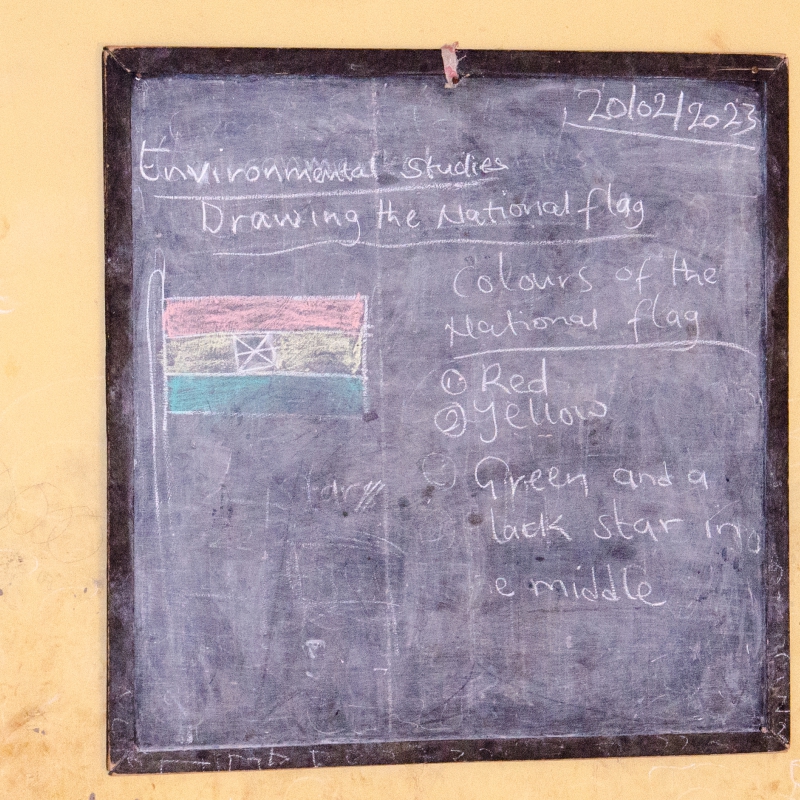 20/02/2023
Environmental Studies
Drawing the National flag
Colours of the
National flag
① Red
② Yellow
Green and a
lack star in
e middle